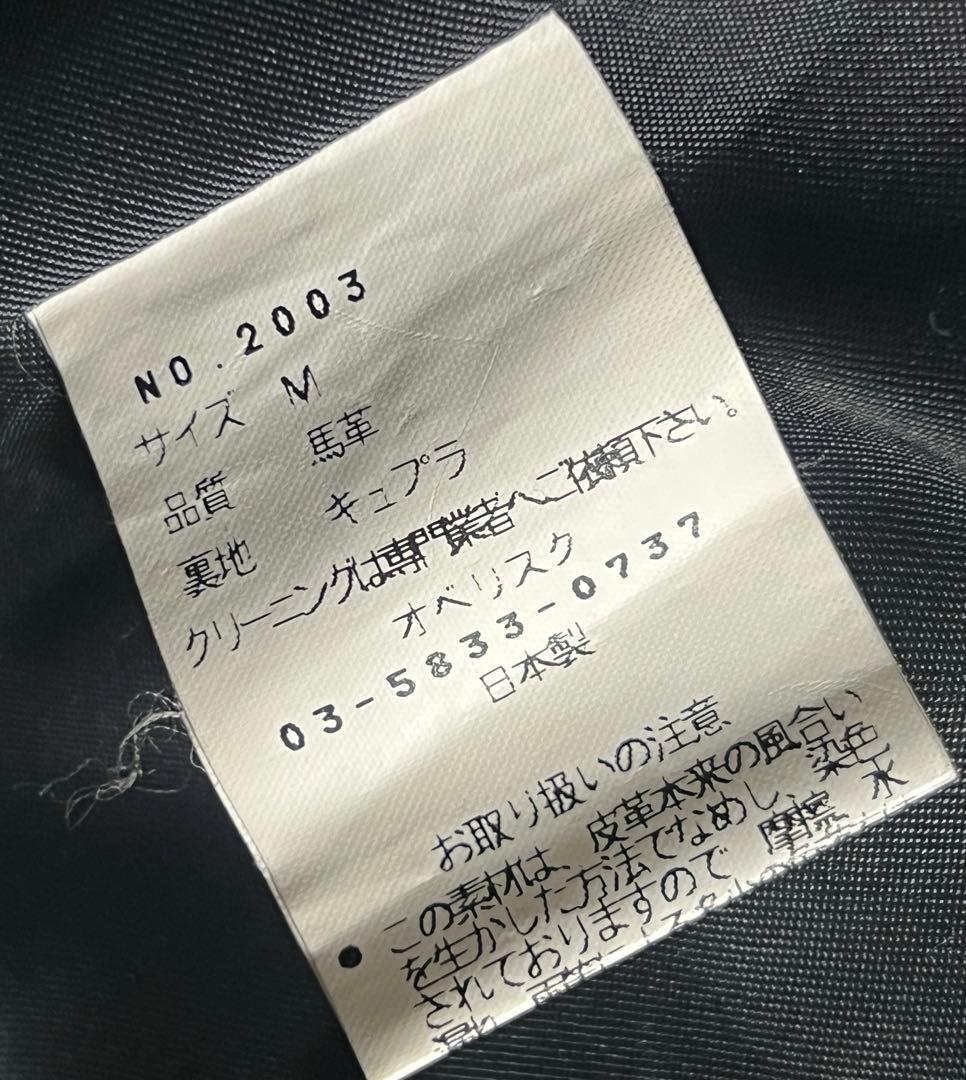 NO.2003
サイズ M
品質 馬革
裏地 キュプラ
クリーニングは専門業者へご依頼下さい。
オベリスク
03-5833-0737
日本製
お取り扱いの注意
この素材は、皮革本来の風合い
を生かした方法でなめし、染色
されておりますので、摩擦、水